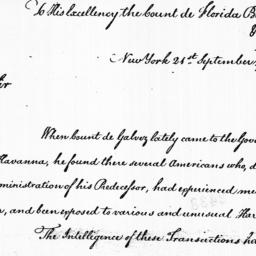 To His Excellency the Count de Florida B
New York 21st September
When Count de Galvez lately came to the Gove
Havanna, he found there several Americans who, d
ministration of his Predecessor, had experienced me
and been exposed to various and unusual Har
The Intelligence of these Transactions ha